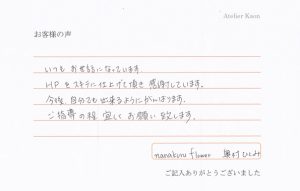 Atelier Kaon
お客様の声
いつもお世話になっています。
HPをステキに仕上げて頂き感謝しています。
今後、自分でも出来るようにがんばります。
ご指導の程宜しくお願い致します。
nanakuru flower 奥村ひとみ
ご記入ありがとうございました